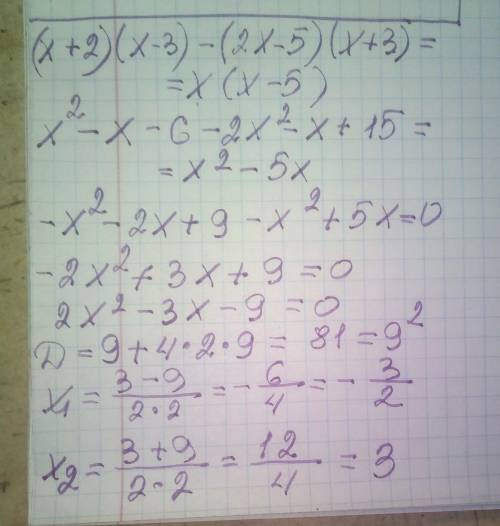 (x+2)(x-3)-(2x-5)(x+3)=
=x(x-5)
x²-x-6-2x²-x+15=
=x²-5x
-x²-2x+9-x²+5x=0
-2x²+3x+9=0
2x²-3x-9=0
D=9+4·2·9=81=9²
x₁=(3-9)/(2·2)=-6/4=-3/2
x₂=(3+9)/(2·2)=12/4=3